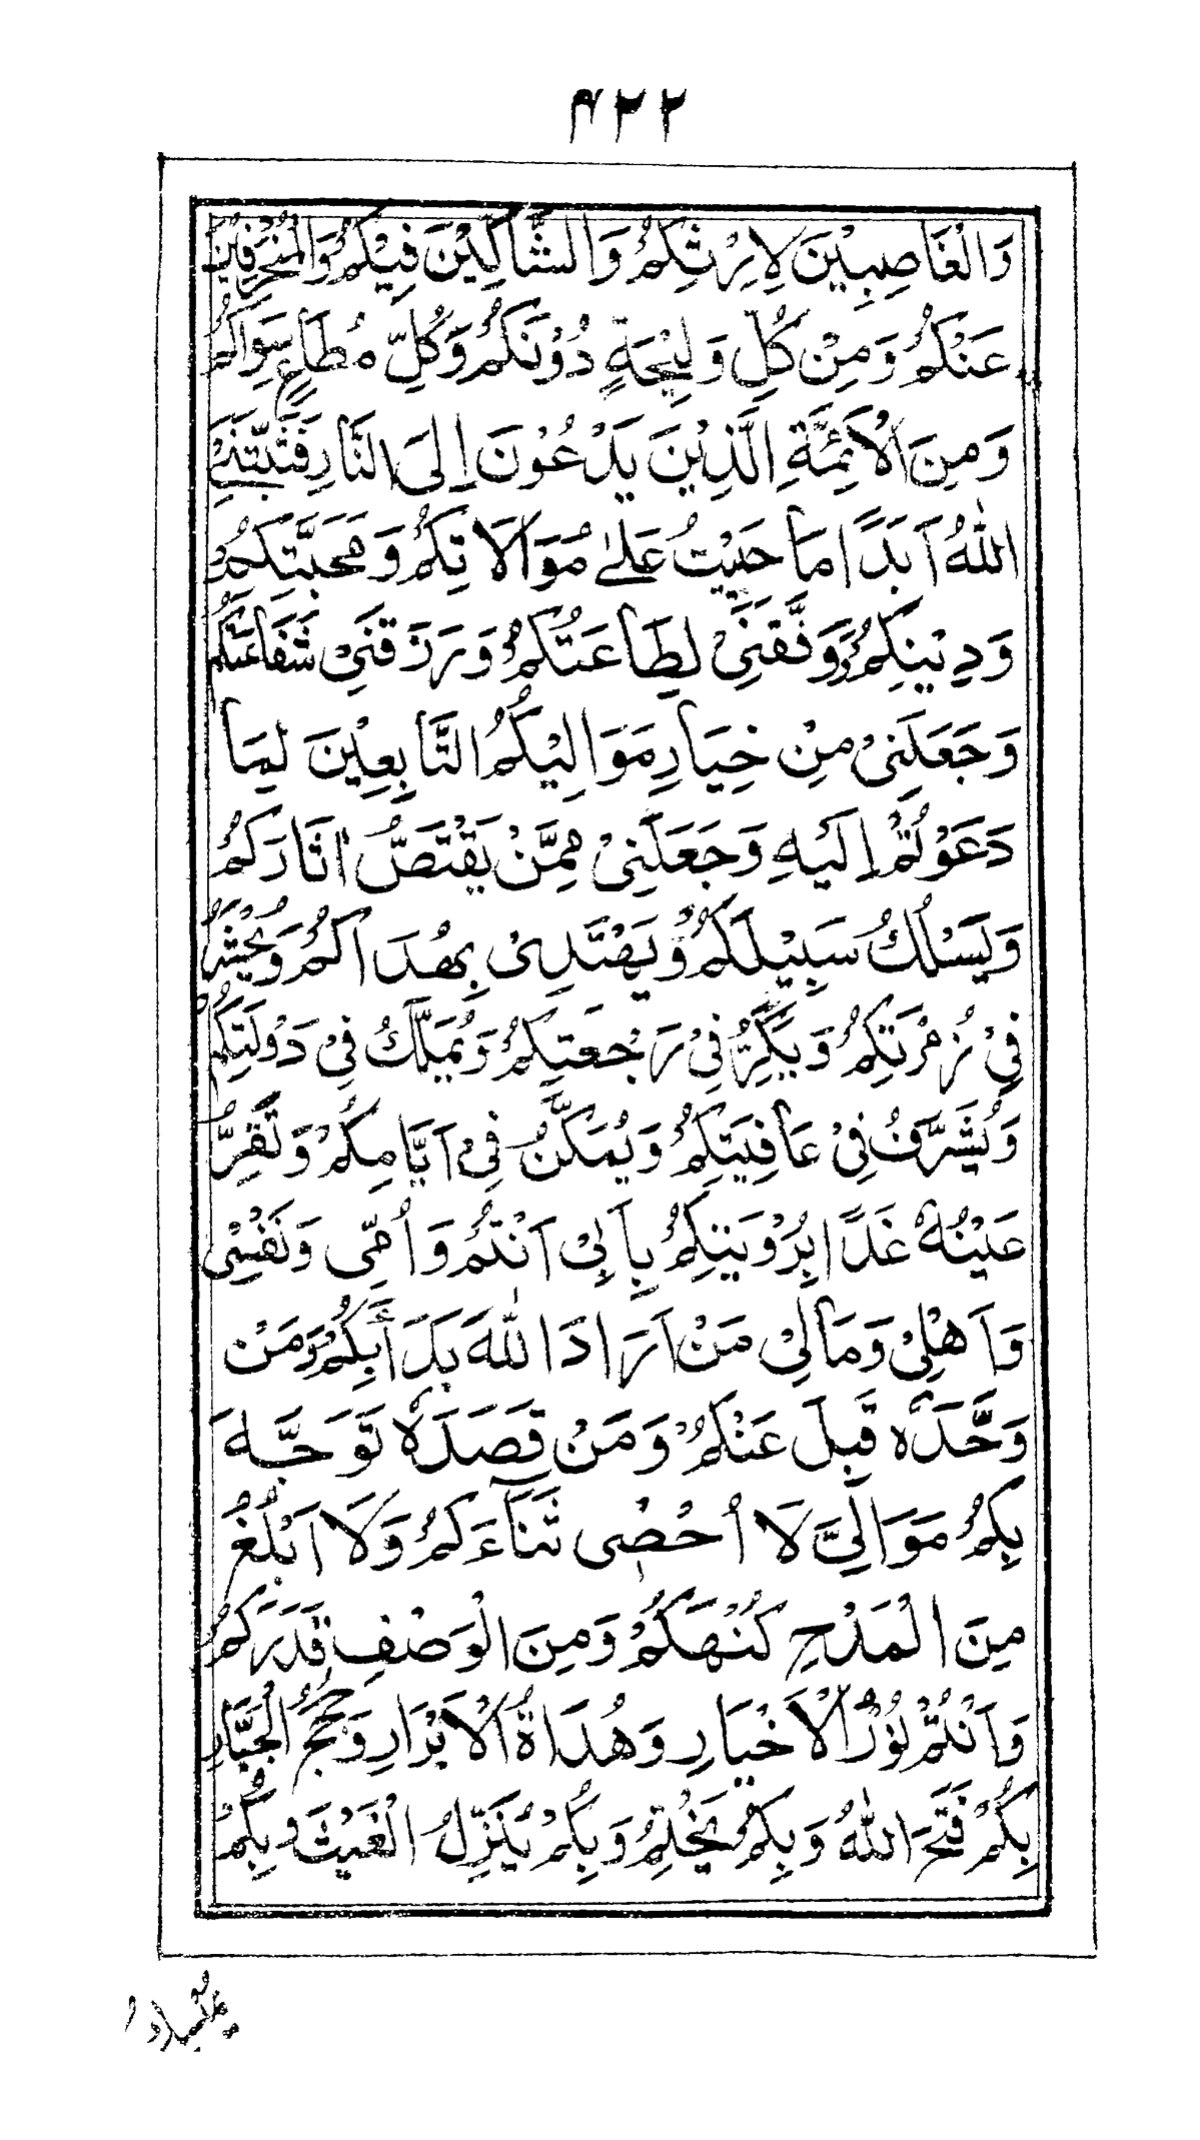 ۴۲۲
وَالْغَاصِبِيْنَ لِاِرْثِكُمْ وَالشَّاكِّيْنَ فِيْكُمْ وَالْمُنْحَرِفِيْنَ
عَنْكُمْ وَمِنْ كُلِّ وَلِيْجَةٍ دُوْنَكُمْ وَكُلِّ مُطَاعٍ سِوَاكُمْ
وَمِنَ الْاَئِمَّةِ الَّذِيْنَ يَدْعُوْنَ اِلَى النَّارِ فَثَبَّتَنِيَ
اللّٰهُ اَبَدًا مَا حَيِيْتُ عَلٰى مُوَالَاتِكُمْ وَمَحَبَّتِكُمْ
وَدِيْنِكُمْ وَوَفَّقَنِيْ لِطَاعَتِكُمْ وَرَزَقَنِيْ شَفَاعَتَكُمْ
وَجَعَلَنِيْ مِنْ خِيَارِ مَوَالِيْكُمُ التَّابِعِيْنَ لِمَا
دَعَوْتُمْ اِلَيْهِ وَجَعَلَنِيْ مِمَّنْ يَقْتَصُّ اٰثَارَكُمْ
وَيَسْلُكُ سَبِيْلَكُمْ وَيَهْتَدِيْ بِهُدَاكُمْ وَيُحْشَرُ
فِيْ زُمْرَتِكُمْ وَيَكِرُّ فِيْ رَجْعَتِكُمْ وَيُمَلَّكُ فِيْ دَوْلَتِكُمْ
وَيُشَرَّفُ فِيْ عَافِيَتِكُمْ وَيُمَكَّنُ فِيْ اَيَّامِكُمْ وَتَقِرُّ
عَيْنُهٗ غَدًا بِرُؤْيَتِكُمْ بِاَبِيْ اَنْتُمْ وَاُمِّيْ وَنَفْسِيْ
وَاَهْلِيْ وَمَالِيْ مَنْ اَرَادَ اللّٰهَ بَدَأَ بِكُمْ وَمَنْ
وَحَّدَهٗ قَبِلَ عَنْكُمْ وَمَنْ قَصَدَهٗ تَوَجَّهَ
بِكُمْ مَوَالِيَّ لَا اُحْصِيْ ثَنَآءَكُمْ وَلَا اَبْلُغُ
مِنَ الْمَدْحِ كُنْهَكُمْ وَمِنَ الْوَصْفِ قَدْرَكُمْ
وَاَنْتُمْ نُوْرُ الْاَخْيَارِ وَهُدَاةُ الْاَبْرَارِ وَحُجَجُ الْجَبَّارِ
بِكُمْ فَتَحَ اللّٰهُ وَبِكُمْ يَخْتِمُ وَبِكُمْ يُنَزِّلُ الْغَيْثَ وَبِكُمْ